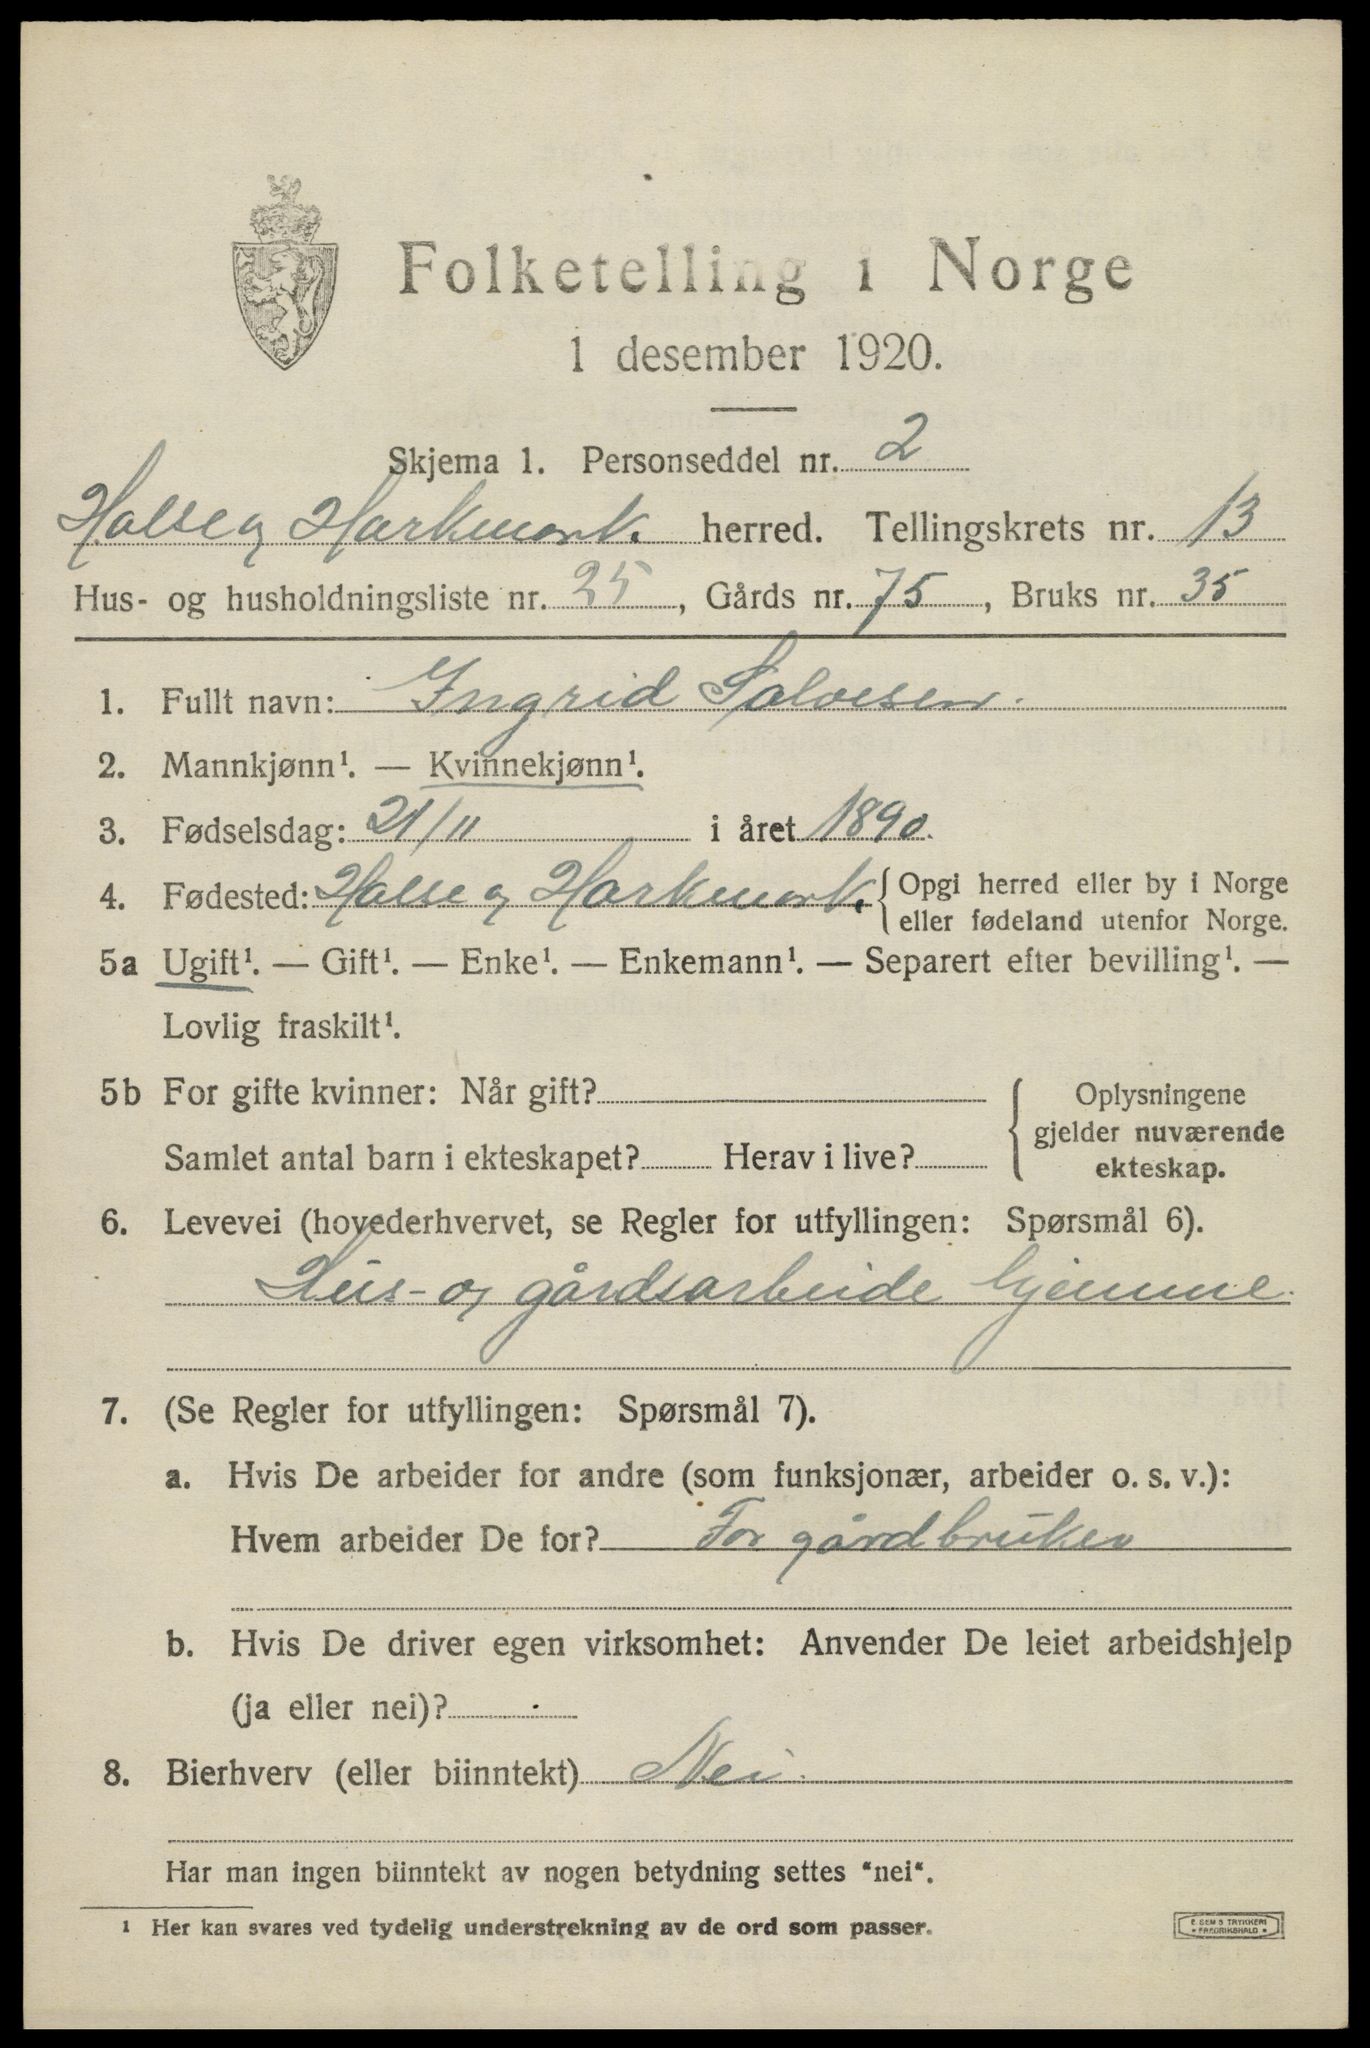 Folketelling i Norge
1 desember 1920.
Skjema 1. Personseddel nr. 2
Halse og Harkmark. herred. Tellingskrets nr. 13
Hus- og husholdningsliste nr. 25, Gårds nr. 75, Bruks nr. 35
1. Fullt navn: Ingrid Salvesen.
2. Mannkjønn¹. — Kvinnekjønn¹.
3. Fødselsdag: 21/11 i året 1890.
4. Fødested: Halse og Harkmark. { Opgi herred eller by i Norge
eller fødeland utenfor Norge.
5a Ugift¹. — Gift¹. — Enke¹. — Enkemann¹. — Separert efter bevilling¹. —
Lovlig fraskilt¹.
5b For gifte kvinner: Når gift?
Samlet antal barn i ekteskapet? Herav i live?
{ Oplysningene
gjelder nuværende
ekteskap.
6. Levevei (hovederhvervet, se Regler for utfyllingen: Spørsmål 6).
Hus- og gårdsarbeide hjemme.
7. (Se Regler for utfyllingen: Spørsmål 7).
a. Hvis De arbeider for andre (som funksjonær, arbeider o. s. v.):
Hvem arbeider De for? For gårdbruker
b. Hvis De driver egen virksomhet: Anvender De leiet arbeidshjelp
(ja eller nei)?
8. Bierhverv (eller biinntekt) Nei.
Har man ingen biinntekt av nogen betydning settes "nei".
¹ Her kan svares ved tydelig understrekning av de ord som passer.
E. SEM'S TRYKKERI
FREDRIKSHALD